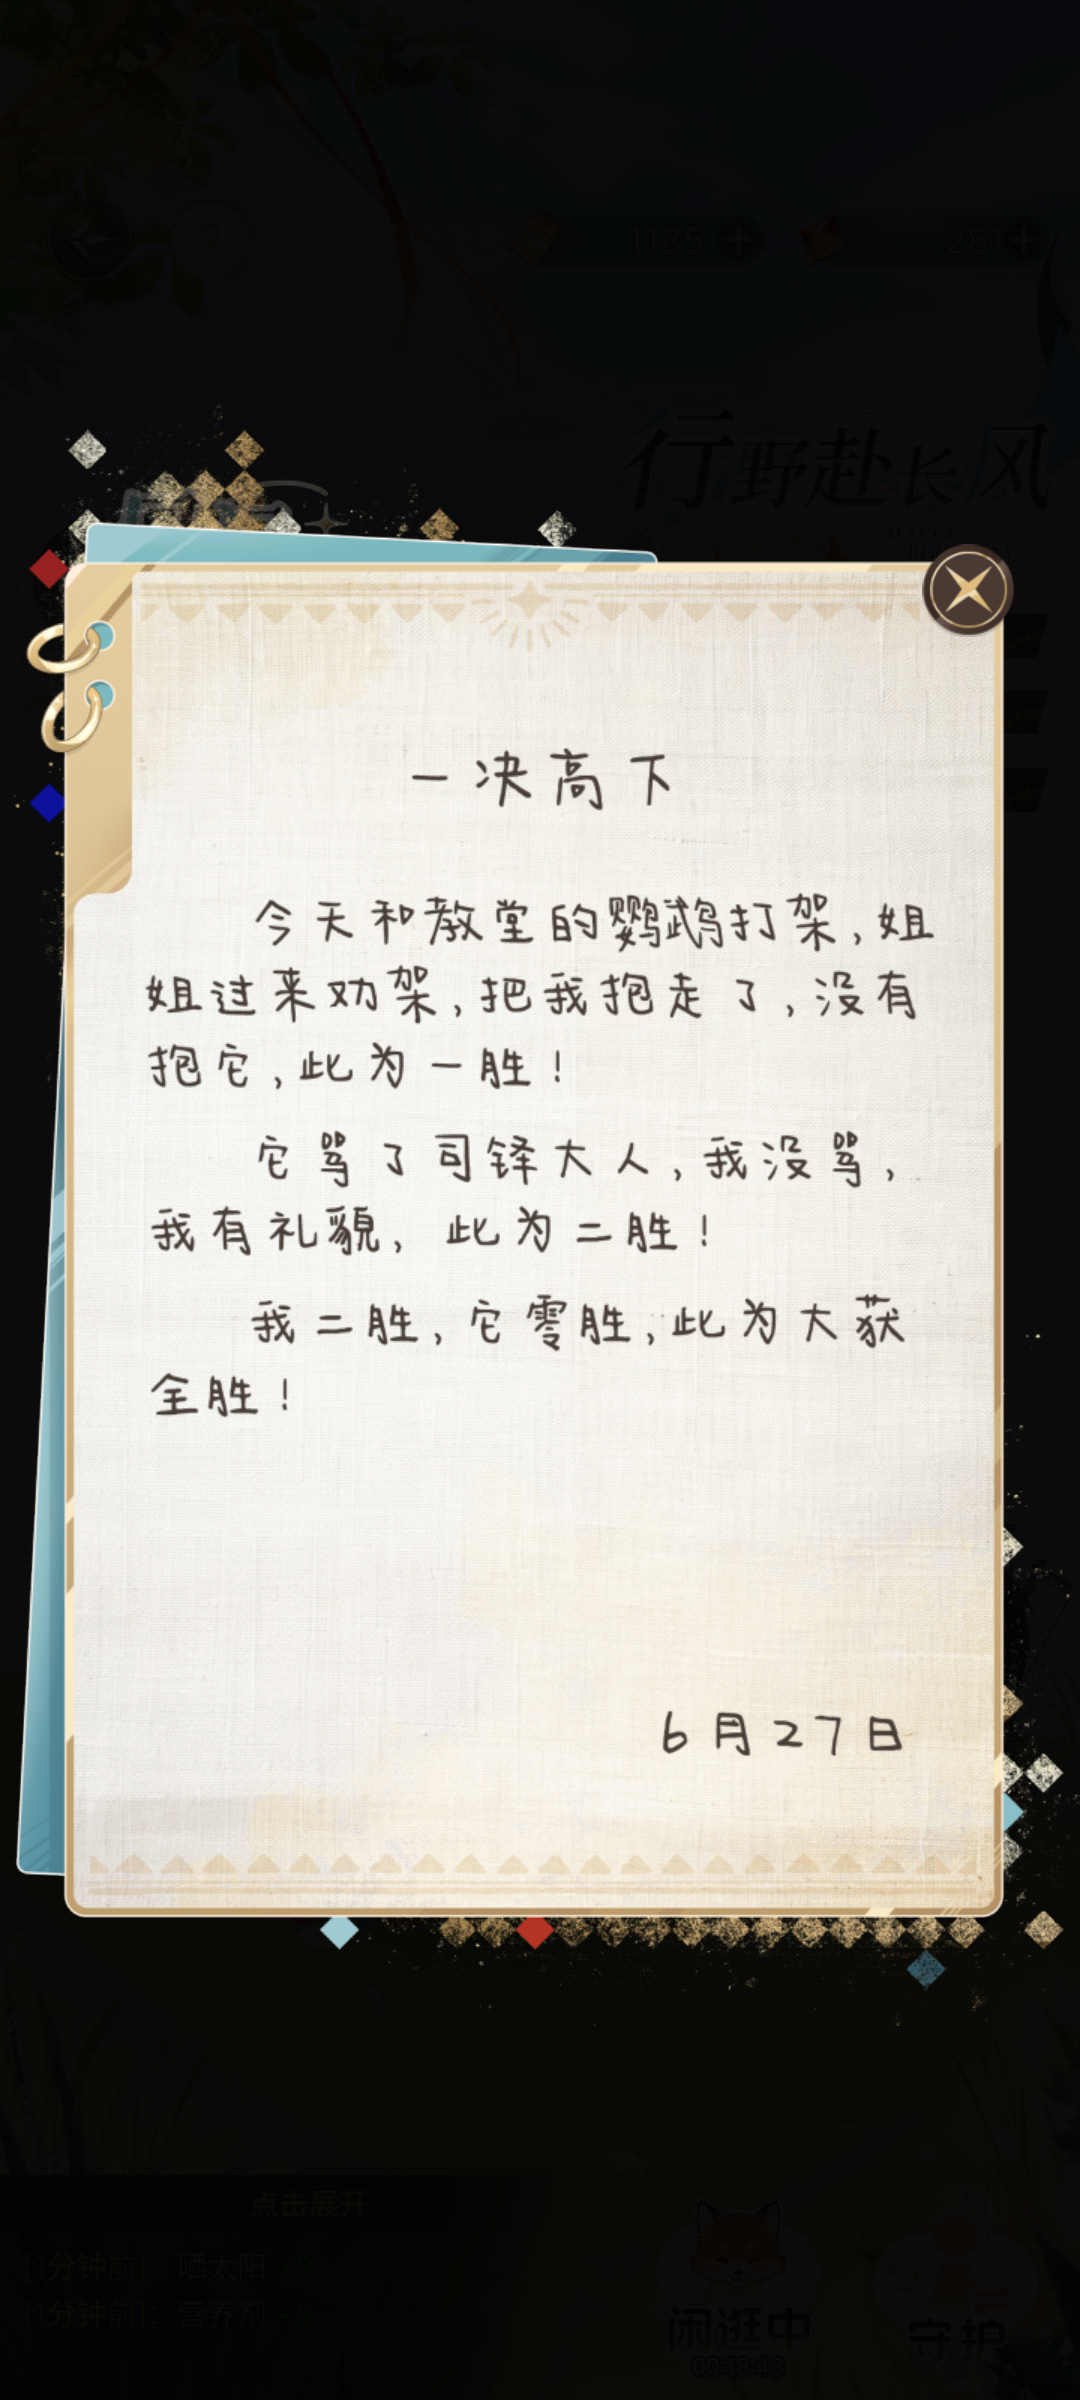 1185
28
行野赴长风
一决高下
今天和教堂的鹦鹉打架,姐
姐过来劝架,把我抱走了,没有
抱它,此为一胜!
它骂了司铎大人,我没骂,
我有礼貌,此为二胜!
我二胜,它零胜,此为大获
全胜!
6月27日
点击展开
[1分钟前]: 晒太阳
[1分钟前]: 营养剂
闲逛中
守护
00:18:43